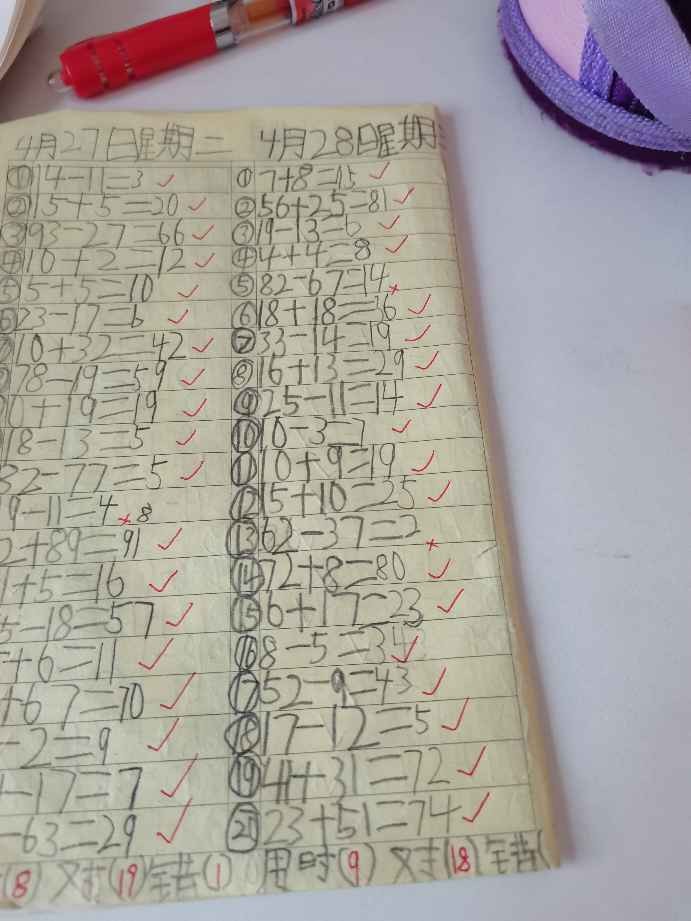 4月27日星期二
①14-11=3
②15+5=20
③93-27=66
④10+2=12
⑤5+5=10
⑥23-17=6
10+32=42
78-19=59
0+19=19
18-13=5
32-77=5
9-11=4 8
2+89=91
1+5=16
5-18=57
+6=11
+67=70
-2=9
-17=7
-63=29
(8) 对(19)错(1
4月28日星期三
①7+8=15
②56+25=81
③19-13=6
④4+4=8
⑤82-67=14
⑥18+18=36
⑦33-14=19
⑧16+13=29
⑨25-11=14
⑩10-3=7
⑪10+9=19
⑫15+10=25
⑬62-37=2
⑭72+8=80
⑮6+17=23
⑯8-5=3
⑰52-9=43
⑱17-12=5
⑲41+31=72
⑳23+51=74
用时(9) 对(18)错(